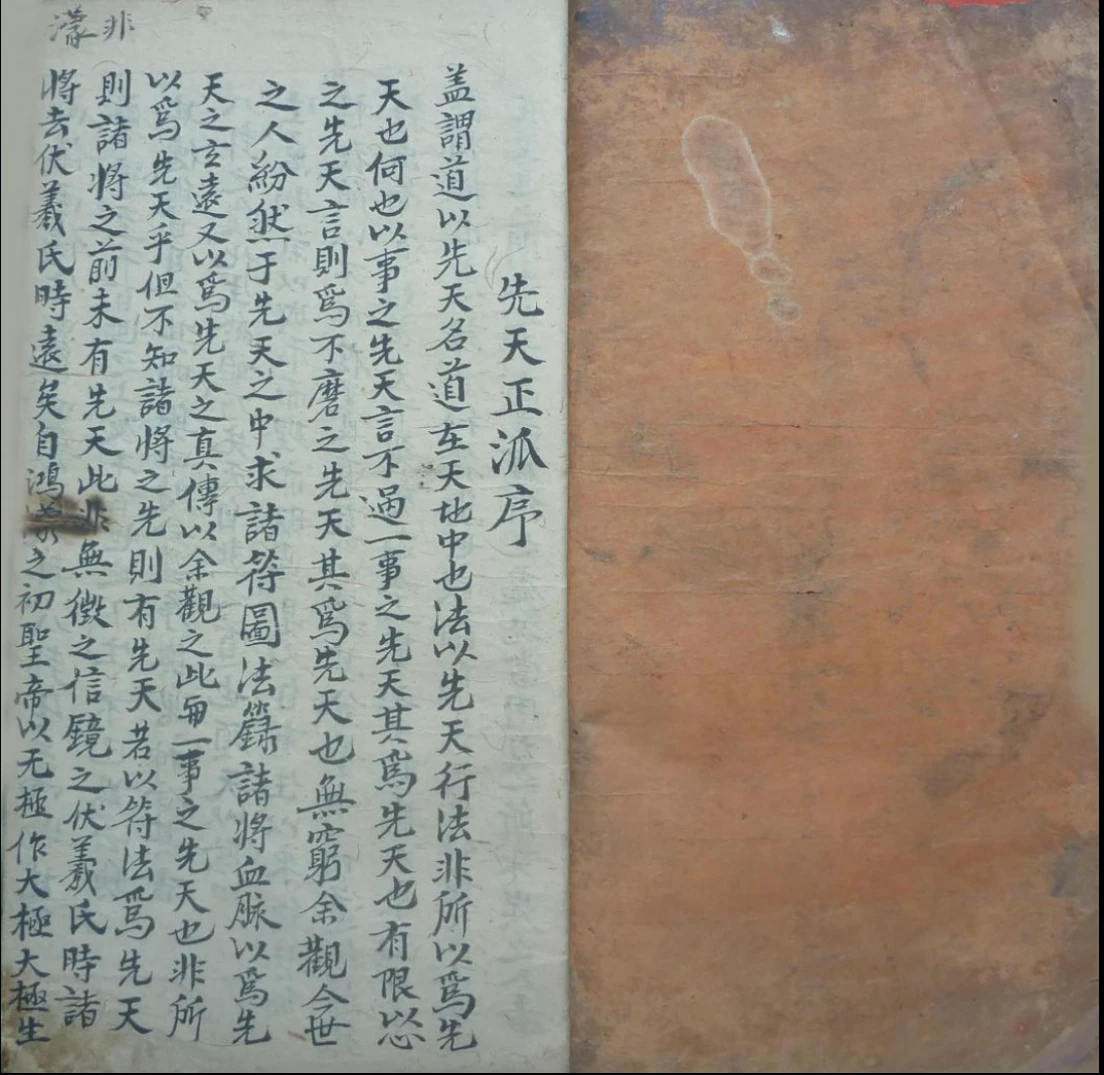 先天正泒序
盖謂道以先天名道在天地中也法以先天行法非所以爲先
天也何也以事之先天言不過一事之先天其爲先天也有限以心
之先天言則爲不磨之先天其爲先天也無窮余觀今世
之人紛然于先天之中求諸符圖法籙諸將血脉以爲先
天之玄遠又以爲先天之真傳以余觀之此一事之先天也非所
以爲先天乎但不知諸將之先則有先天若以符法爲先天
則諸将之前未有先天此非無徵之信鏡之伏羲氏時諸
將去伏羲氏時遠矣自鴻之初聖帝以无極作大極大極生
非
濛